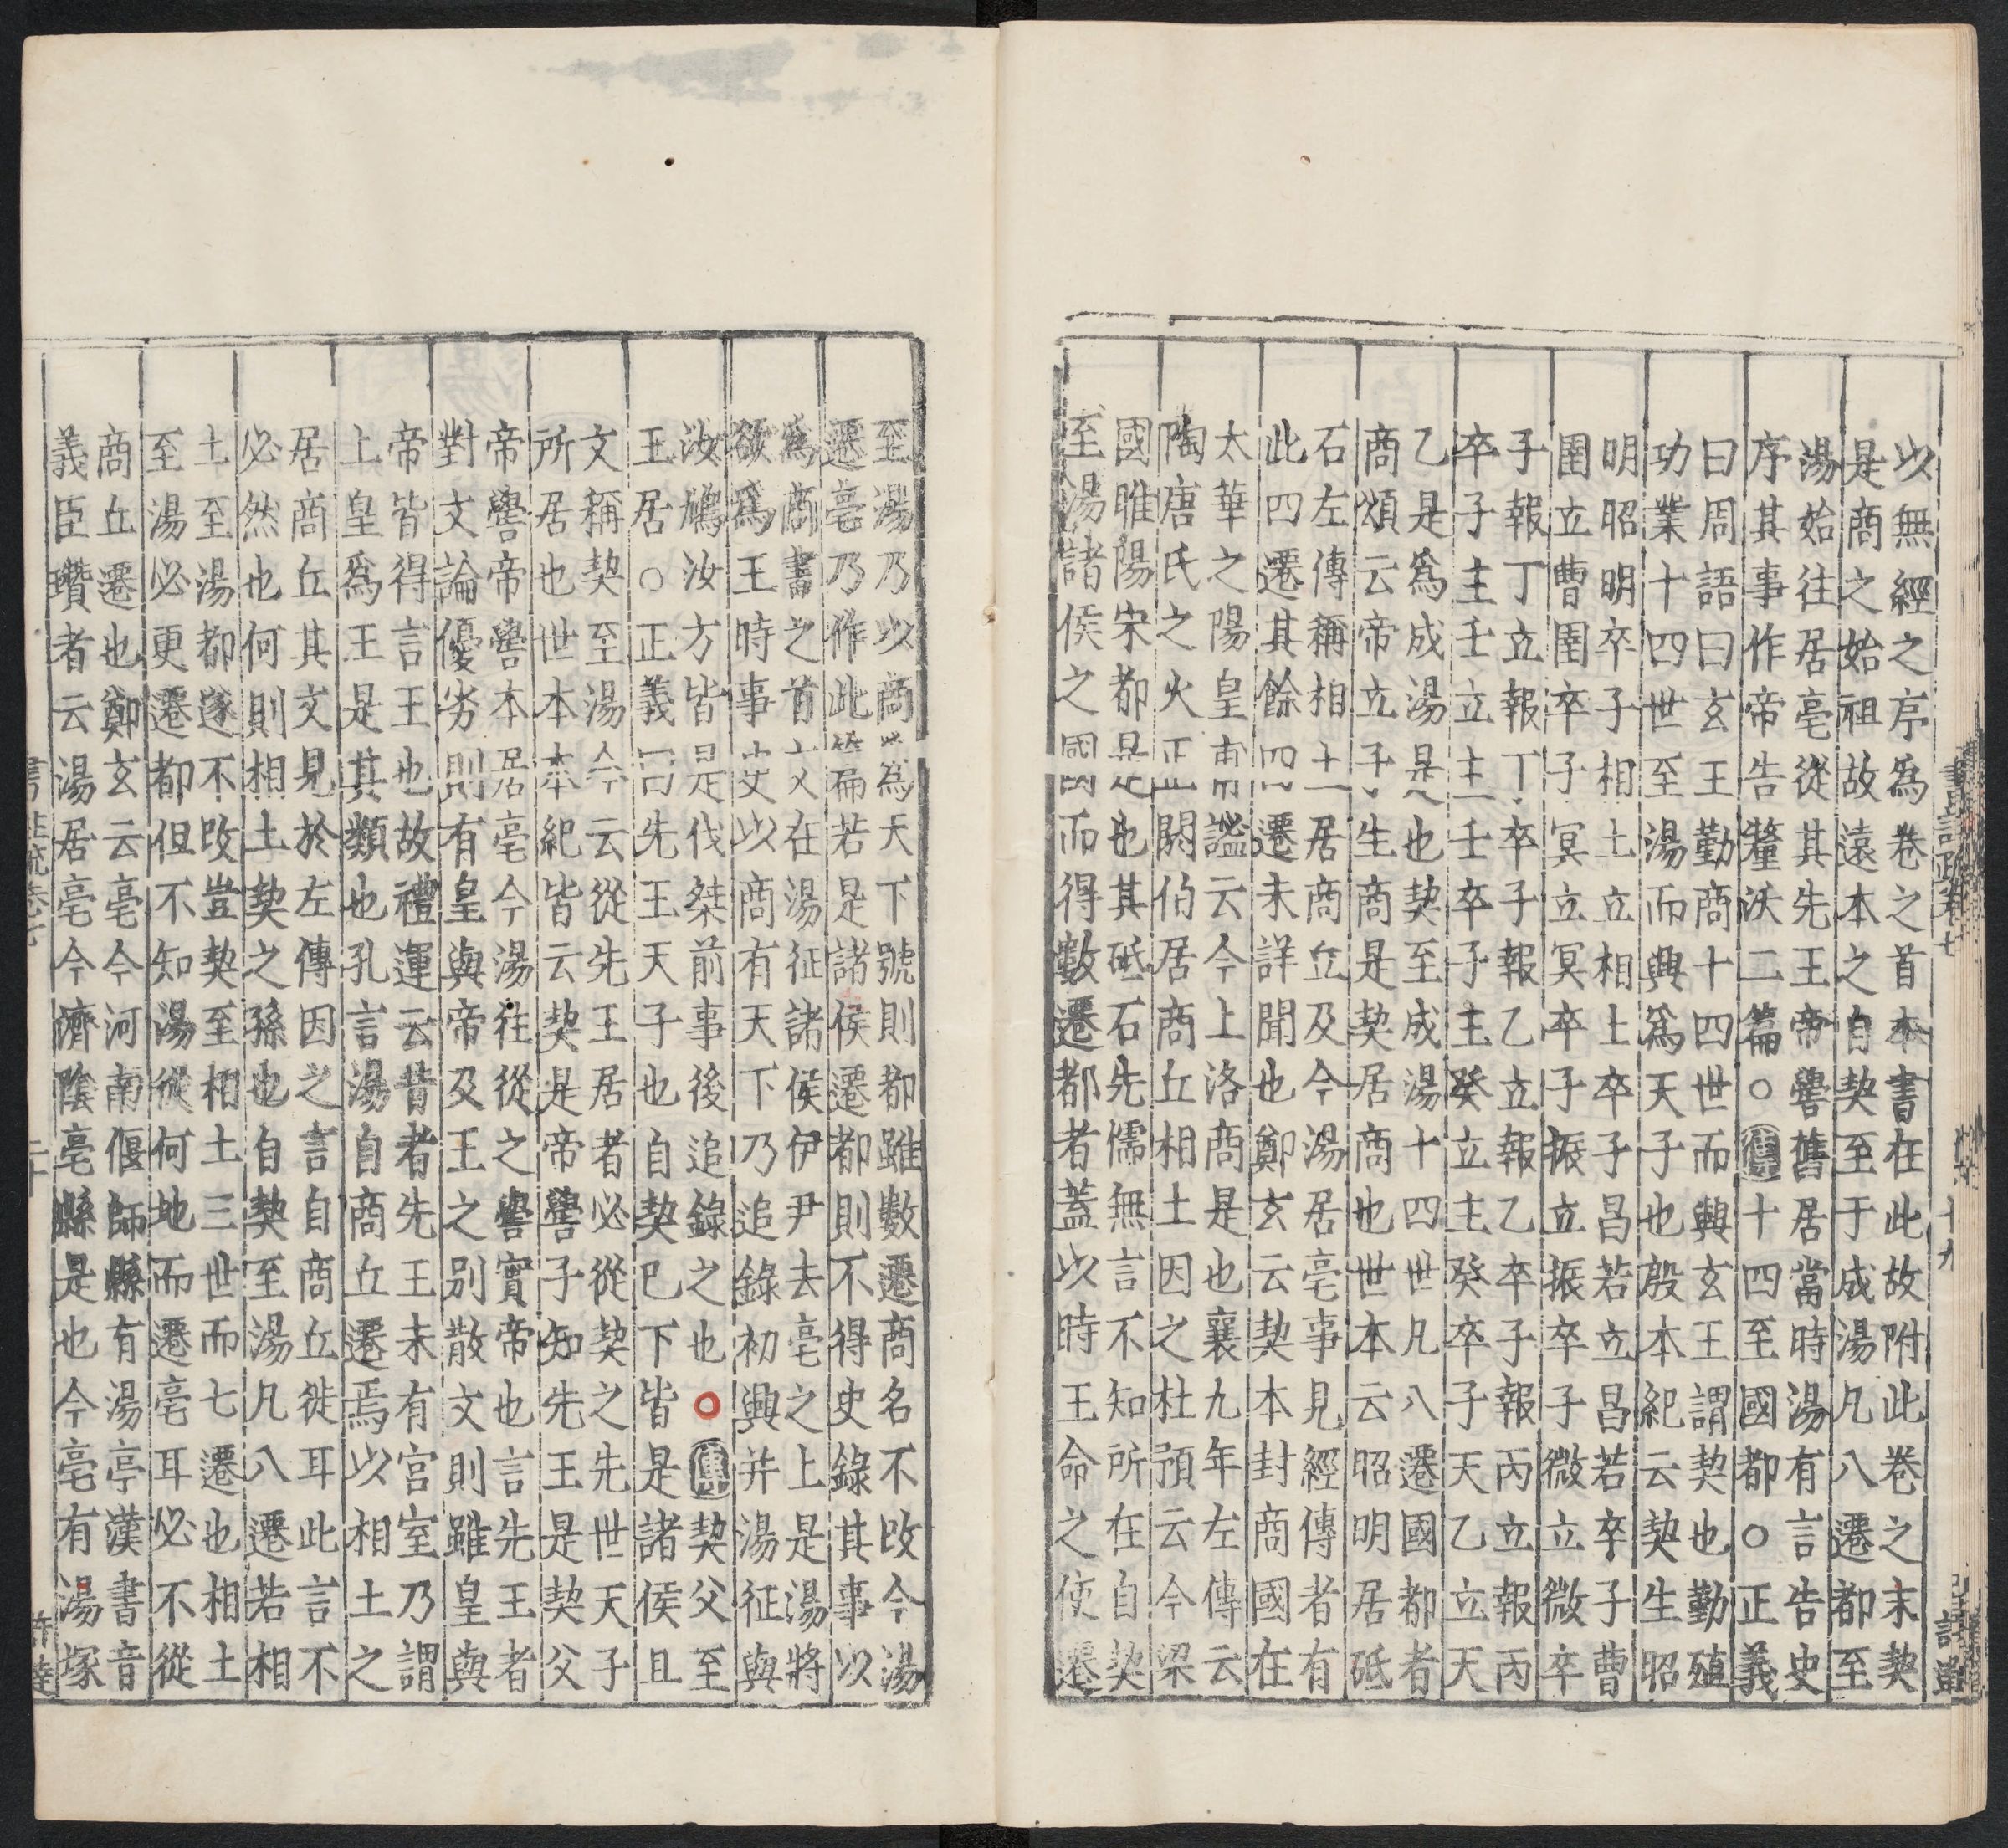 十九
以無經之序爲卷之首本書在此故附此卷之末契
是商之始祖故遠本之自契至于成湯凡八遷都至
湯始往居亳從其先王帝嚳舊居當時湯有言告史
序其事作帝告釐沃二篇○傳十四至國都○正義
曰周語曰玄王勤商十四世而興玄王謂契也勤殖
功業十四世至湯而興爲天子也殷本紀云契生昭
明昭明卒子相土立相土卒子昌若立昌若卒子曹
圉立曹圉卒子冥立冥卒子振立振卒子微立微卒
子報丁立報丁卒子報乙立報乙卒子報丙立報丙
卒子主壬立主壬卒子主癸立主癸卒子天乙立天
乙是爲成湯是也契至成湯十四世凡八遷國都者
商頌云帝立子生商是契居商也世本云昭明居砥
石左傳稱相土居商丘及今湯居亳事見經傳者有
此四遷其餘四遷未詳聞也鄭玄云契本封商國在
太華之陽皇甫謐云今上洛商是也襄九年左傳云
陶唐氏之火正閼伯居商丘相土因之杜預云今梁
國睢陽宋都是也其砥石先儒無言不知所在自契
至湯諸侯之國而得數遷都者蓋以時王命之使遷
至湯乃以商爲天下號則都雖數遷商名不改今湯
遷亳乃作此篇若是諸侯遷都則不得史錄其事以
爲商書之首文在湯征諸侯伊尹去亳之上是湯將
欲爲王時事史以商有天下乃追錄初興并湯征與
汝鳩汝方皆是伐桀前事後追錄之也○傳契父至
王居○正義曰先王天子也自契已下皆是諸侯且
文稱契至湯今云從先王居者必從契之先世天子
所居也世本本紀皆云契是帝嚳子知先王是契父
帝嚳帝嚳本居亳今湯往從之嚳實帝也言先王者
對文論優劣則有皇與帝及王之别散文則雖皇與
帝皆得言王也故禮運云昔者先王未有宮室乃謂
上皇爲王是其類也孔言湯自商丘遷焉以相土之
居商丘其文見於左傳因之言自商丘徙耳此言不
必然也何則相土契之孫也自契至湯凡八遷若相
土至湯都遂不改豈契至相土三世而七遷也相土
至湯必更遷都但不知湯從何地而遷亳耳必不從
商丘遷也鄭玄云亳今河南偃師縣有湯亭漢書音
義臣瓚者云湯居亳今濟陰亳縣是也今亳有湯塚